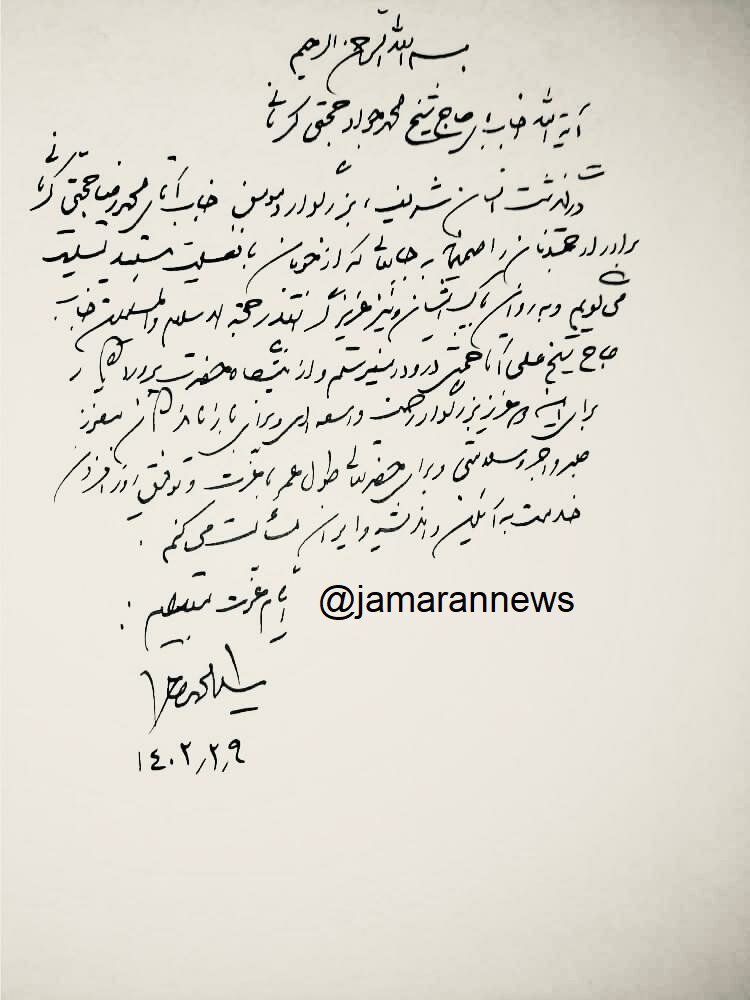 بسم الله الرحمن الرحیم
آیة الله جناب آقای حاج شیخ محمدجواد حجتی کرمانی
درگذشت انسان شریف، بزرگوار و مومن جناب آقای محمدرضا حجتی کرمانی
برادر ارجمندتان را صمیمانه به جنابعالی که از خوبان با فضیلت هستید تسلیت
می‌گویم و به روان پاک ایشان و نیز عزیز گرانقدر حجة الاسلام والمسلمین جناب
حاج شیخ علی آقا حجتی درود می‌فرستم و از پیشگاه حضرت پروردگار
برای این دو عزیز بزرگوار رحمت واسعه الهی و برای بازماندگان معزز
صبر و اجر و سلامتی و برای حضرتعالی طول عمر با عزت و توفیق روزافزون
خدمت به آئین و اندیشه و ایران مسألت می‌کنم.
ایام عزت مستدام
@jamarannews
سید محمد خاتمی
١٤٠٢٫٢٫٢٩